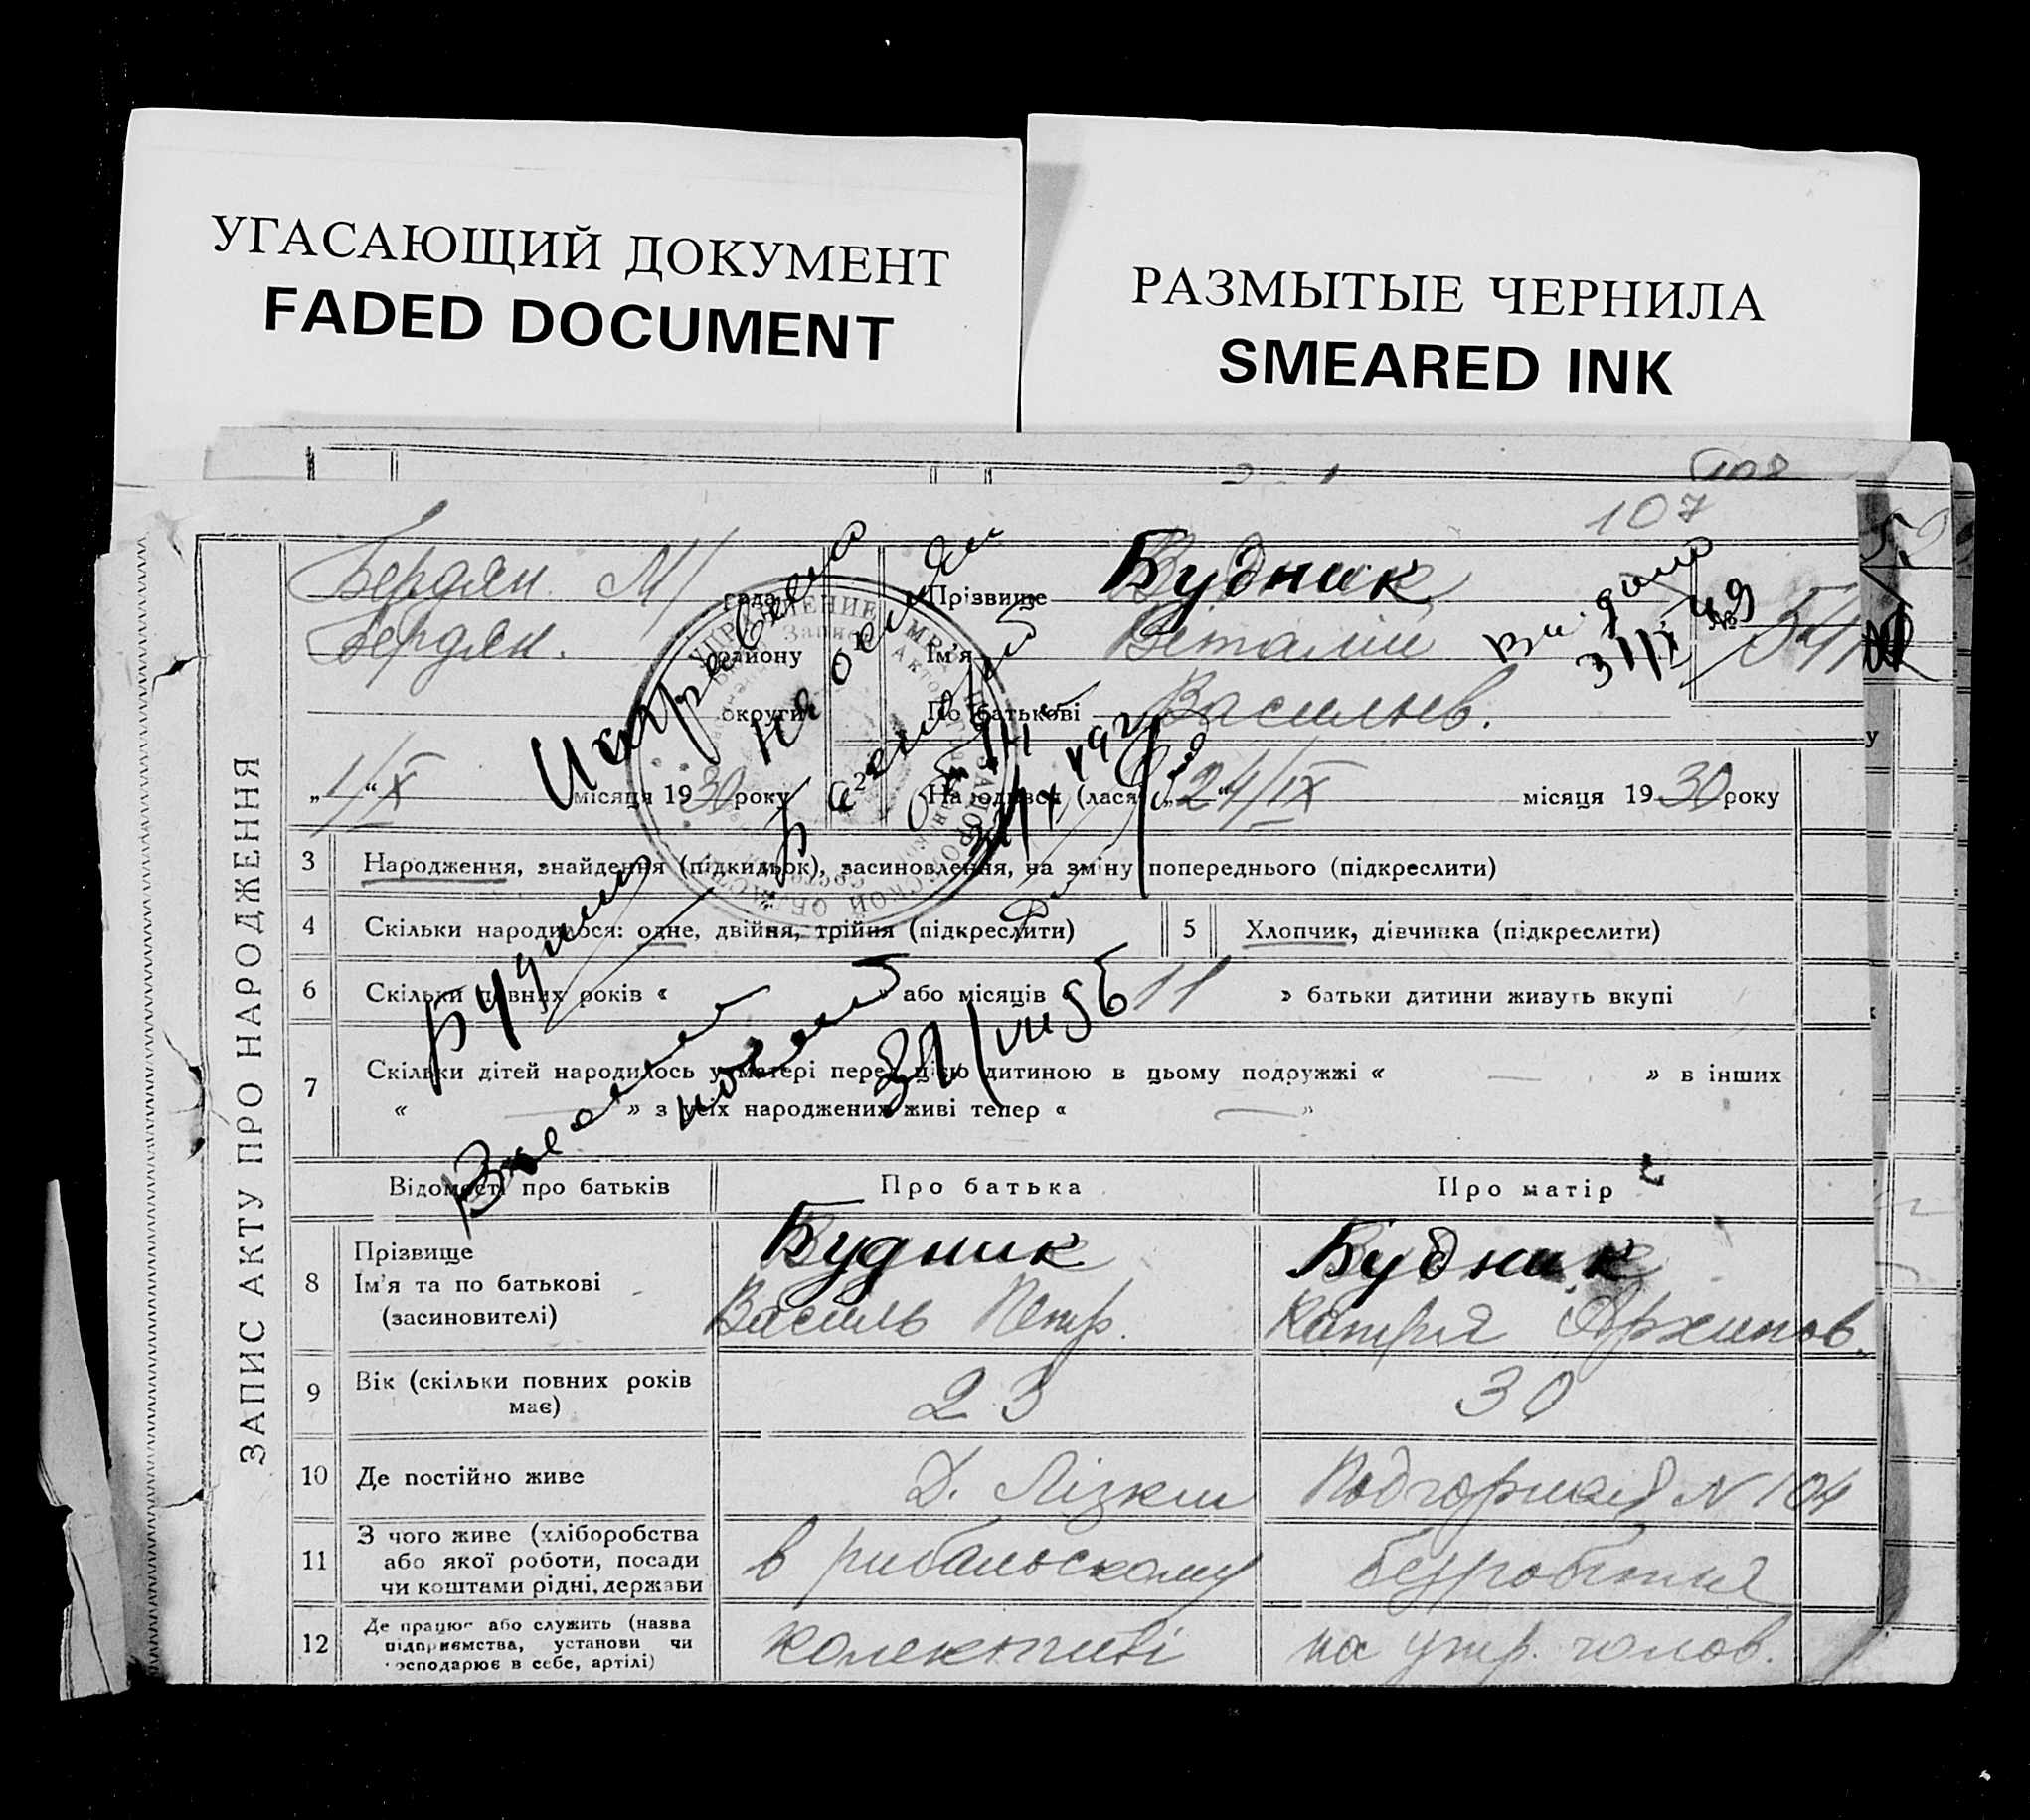 УГАСАЮЩИЙ ДОКУМЕНТ
FADED DOCUMENT
РАЗМЫТЫЕ ЧЕРНИЛА
SMEARED INK
108
107
ЗАПИС АКТУ ПРО НАРОДЖЕННЯ
Бердян. М/ рада
Бердян. району
округи
„1/“ X місяця 1930 року
1
Прізвище Будник
Ім'я Віталій
По батькові Васильев.
№ 541
Видано
31/X 49
2
Народився (лася) „24/IX“ місяця 1930 року
Исправлено
на основании
Будник
УПРАВЛЕНИЕ МВД ЗАПОРОЖСКОЙ ОБЛАСТИ
3 Народження, знайдення (підкидьок), засиновлення, на зміну попереднього (підкреслити)
4 Скільки народилося: одне, двійня, трійня (підкреслити)
5 Хлопчик, дівчинка (підкреслити)
6 Скільки повних років « » або місяців « 11 » батьки дитини живуть вкупі
7 Скільки дітей народилось у матері перед цією дитиною в цьому подружжі « — » в інших
« — » з усіх народжених живі тепер « — »
31/VIII 56
Відомості про батьків
Про батька
Про матір
8 Прізвище
Ім'я та по батькові
(засиновителі)
Будник
Василь Петр.
Будник
Катря Архипов.
9 Вік (скільки повних років
має)
23
30
10 Де постійно живе
Д. Лізки
Подгорная N 104
11 З чого живе (хліборобства
або якої роботи, посади
чи коштами рідні, держави
в рибальському
безробітня
12 Де працює або служить (назва
підприємства, установи чи
господарює в себе, артілі)
колективі
на утр. чолов.